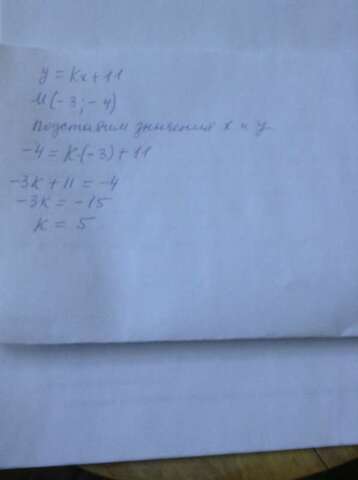 y = Kx + 11
M(-3; -4)
Подставим значения x и y.
-4 = K·(-3) + 11
-3K + 11 = -4
-3K = -15
K = 5